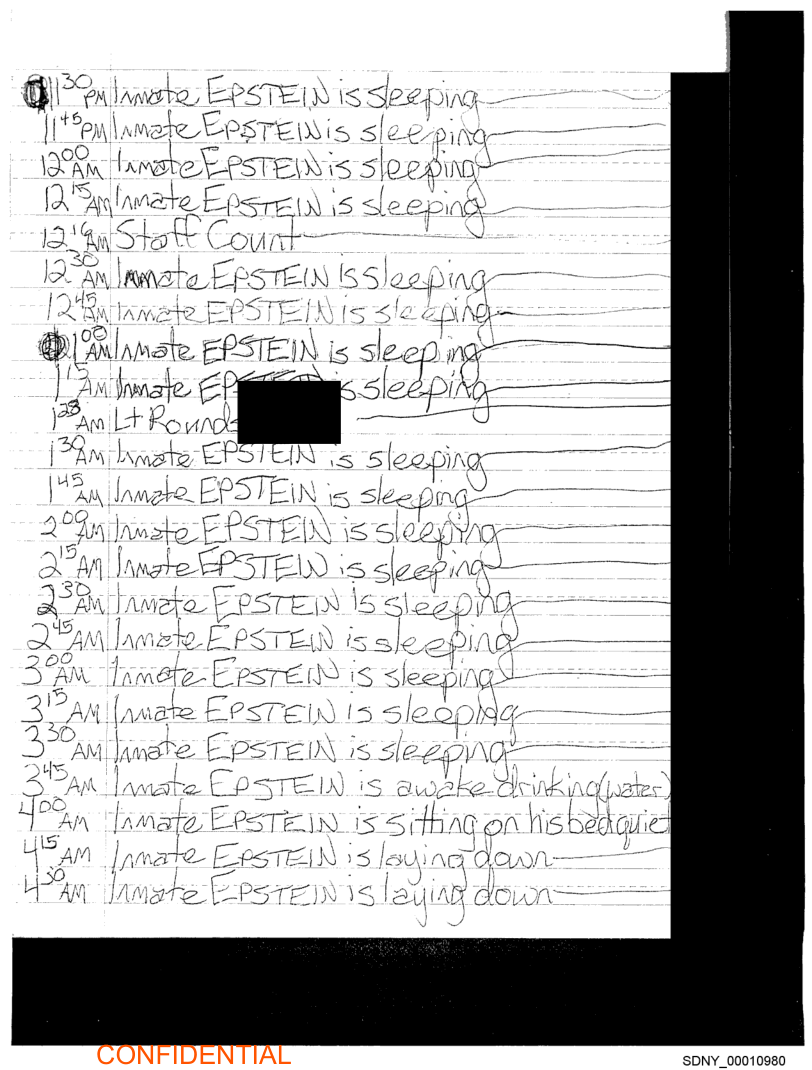 11 30 PM Inmate EPSTEIN is sleeping
11 45 PM Inmate EPSTEIN is sleeping
12 00 AM Inmate EPSTEIN is sleeping
12 15 AM Inmate EPSTEIN is sleeping
12 16 AM Staff Count
12 30 AM Inmate EPSTEIN is sleeping
12 45 AM Inmate EPSTEIN is sleeping
1 00 AM Inmate EPSTEIN is sleeping
1 15 AM Inmate EPSTEIN is sleeping
1 28 AM Lt Rounds
1 30 AM Inmate EPSTEIN is sleeping
1 45 AM Inmate EPSTEIN is sleeping
2 00 AM Inmate EPSTEIN is sleeping
2 15 AM Inmate EPSTEIN is sleeping
2 30 AM Inmate EPSTEIN is sleeping
2 45 AM Inmate EPSTEIN is sleeping
3 00 AM Inmate EPSTEIN is sleeping
3 15 AM Inmate EPSTEIN is sleeping
3 30 AM Inmate EPSTEIN is sleeping
3 45 AM Inmate EPSTEIN is awake drinking (water)
4 00 AM Inmate EPSTEIN is sitting on his bed quiet
4 15 AM Inmate EPSTEIN is laying down
4 30 AM Inmate EPSTEIN is laying down
CONFIDENTIAL
SDNY_00010980